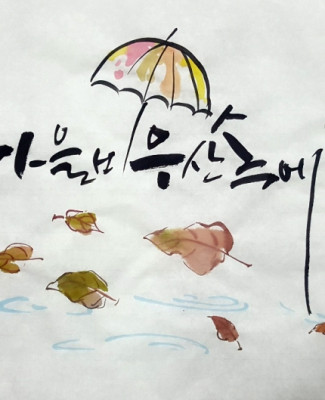 가을비 우산속에